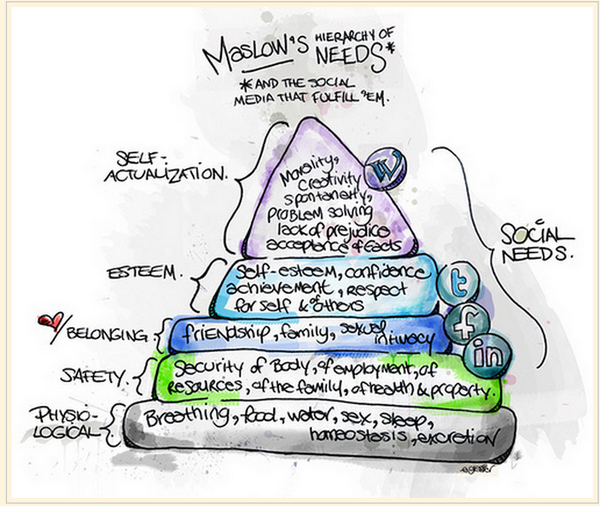 MASLOW'S HIERARCHY OF
NEEDS*
*AND THE SOCIAL
MEDIA THAT FULFILL 'EM.
SELF-
ACTUALIZATION.
W
Morality,
creativity
spontaneity,
PROBLEM SOLVING
lack of prejudice
acceptance of facts
SOCIAL
NEEDS.
ESTEEM.
Self-esteem, confidence
achievement, respect
for self & of others
t
BELONGING,
friendship, family, sexual
intimacy
f
SAFETY.
Security of Body, of employment, of
resources, of the family, of health & property.
in
PHYSIO-
LOGICAL
Breathing, food, water, sex, sleep,
homeostasis, excretion